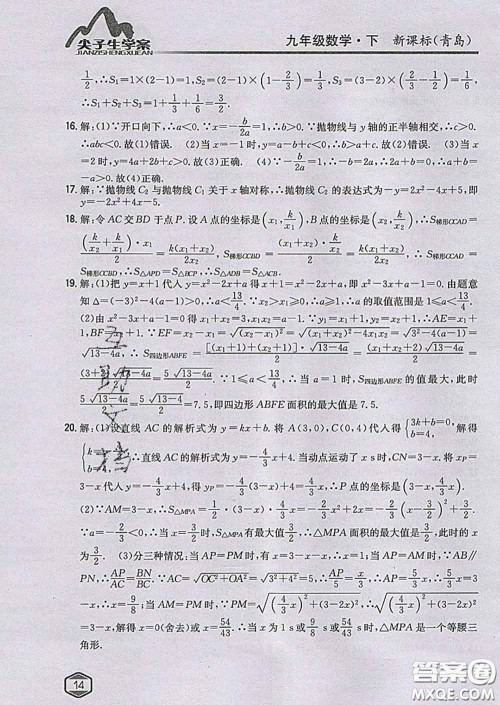 尖子生学案
JIANZISHENGXUEAN
九年级数学·下 新课标(青岛)
1/2,∴S₁=1×(2-1)=1,S₂=(2-1)×(1-1/2)=1/2,S₃=(3-2)×(1/2-1/3)=1/6,
∴S₁+S₂+S₃=1+1/2+1/6=
16. 解:(1)∵开口向下,∴a<0.∵x=-b/2a=1,∴b>0.∵抛物线与y轴的正半轴相交,∴c>0.
∴abc<0.故(1)错误. (2)当x=-1时,y<0,∴a-b+c<0.故(2)错误. (3)当x
=2时,y=4a+2b+c>0.故(3)正确. (4)∵-b/2a=1,∴b=-2a,∴b+2a=0.故(4)正确.
17. 解:∵抛物线C₂与抛物线C₁关于x轴对称,∴抛物线C₂的表达式为-y=2x²-4x+5,即
y=-2x²+4x-5.
18. 解:令AC交BD于点P.设A点的坐标是(x₁,k/x₁),B点的坐标是(x₂,k/x₂),S梯形CCAD=
19. 解:(1)把y=x+1代入y=x²-2x+a得x+1=x²-2x+a,即x²-3x+a-1=0.由题意
知Δ=(-3)²-4(a-1)>0,∴a<13/4.又∵a≥1,∴a的取值范围是1≤a<13/4.
(2)由x²-3x+a-1=0得x₁+x₂=3,x₁x₂=a-1.∵y₁=x₁+1,y₂=x₂+1,∴AE=x₁+
1,BF=x₂+1.∵EF=x₂-x₁=√(x₂-x₁)²=√(x₁+x₂)²-4x₁x₂=√3²-4(a-1)
=√13-4a,∴S四边形ABFE=[(x₁+1)+(x₂+1)]·√13-4a/2=(x₁+x₂+2)·√13-4a/2=
(3+2)√13-4a/2=5√13-4a/2.∵1≤a<13/4,∴当a=1时,S四边形ABFE的值最大,此时
5√13-4a/2=5√13-4/2=7.5,即四边形ABFE面积的最大值是7.5.
20. 解:(1)设直线AC的解析式为y=kx+b.将A(3,0),C(0,4)代入解得{3k+b=0, b=4, 解得
∴直线AC的解析式为y=-4/3x+4.当动点运动了x s时,CN=3-x.将x=
3-x代入y=-4/3x+4,得yP=-4/3(3-x)+4=4/3x,∴P点的坐标是(3-x,4/3x).
(2)∵AM=3-x,∴S△MPA=1/2(3-x)·4/3x=-2/3x²+2x=-2/3(x-3/2)²+3/2.
∵a=-2/3<0,∴当x=3/2时,S△MPA有最大值是3/2,△MPA面积的最大值是3/2,此时的x
为3/2. (3)分三种情况:当AP=PM时,有x=3-x-x,∴x=1;当AP=AM时,∵AB∥
PN,∴AP/AC=BN/BC.∵AC=√OC²+OA²=√3²+4²=5,∴AP/5=x/3,∴AP=5/3x,∴5/3x=3
-x,∴x=9/8;当AM=PM时,∵PM=√(4/3x)²+(3-2x)²,∴√(4/3x)²+(3-2x)²=
3-x,∴x=0(舍去)或x=54/43,∴当x为1 s或9/8 s或54/43 s时,△MPA是一个等腰三
角形.
14
答案圈
MXQE.COM